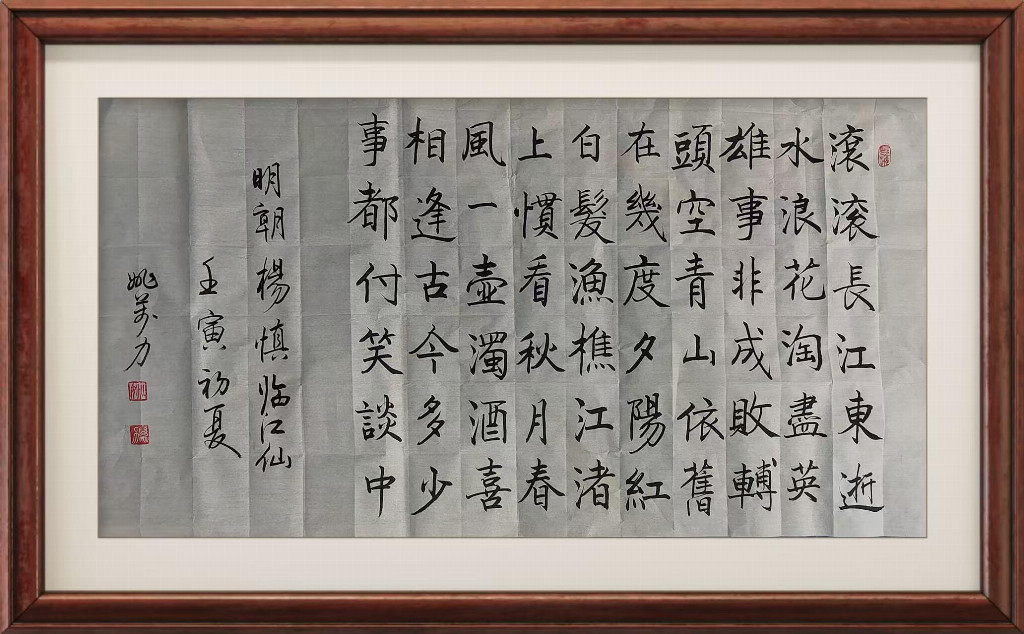 滾滚長江東逝
水浪花淘盡英
雄事非成敗轉
頭空青山依舊
在幾度夕陽紅
白髮漁樵江渚
上慣看秋月春
風一壺濁酒喜
相逢古今多少
事都付笑談中
明朝楊慎临江仙
壬寅初夏
姚萬力